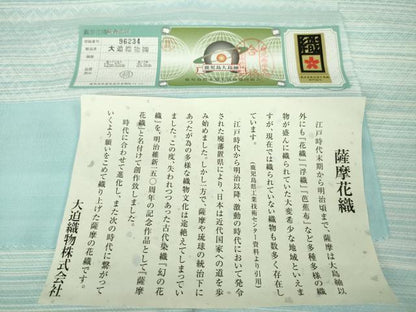 96234
大迫織物
鹿児島大島紬
薩摩花織
江戸時代末期から明治頃まで、薩摩は大島紬以
外にも『花織』『浮織』『芭蕉布』など多種多様の織
物が盛んに織られていた大変希少な地域といえま
すが、現在では織られていない織物も数多く存在し
ています。
(鹿児島県工業技術センター資料より引用)
江戸時代から明治以降、激動の時代において発令
された廃藩置県により、日本は近代国家への道を歩
み始めました。しかし一方で、薩摩や琉球の統治下に
あったが為の多様な織物文化は途絶えてしまってい
ました。この度、失われつつあった古代染織『幻の花
織』を、明治維新一五〇周年の記念作品として『薩摩
花織』と名付けて創作致しました。
時代に合わせて進化し、また次の時代に繋がって
いくよう願いをこめて織り上げた薩摩の花織です。
大迫織物株式会社